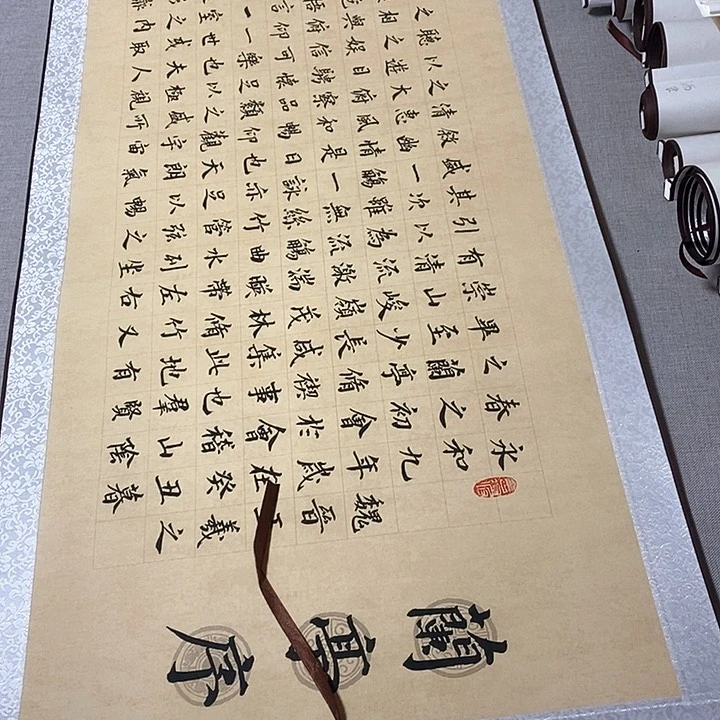 蘭亭序
魏晉王羲之
永和九年歲在癸丑暮
春之初會於會稽山陰
之蘭亭脩禊事也羣賢
畢至少長咸集此地有
崇山峻嶺茂林脩竹又
有清流激湍暎帶左右
引以為流觴曲水列坐
其次雖無絲竹管弦之
盛一觴一詠亦足以暢
敘幽情是日也天朗氣
清惠風和暢仰觀宇宙
之大俯察品類之盛所
以遊目騁懷足以極視
聽之娛信可樂也夫人
之相與俯仰一世或取
悟言一室之內